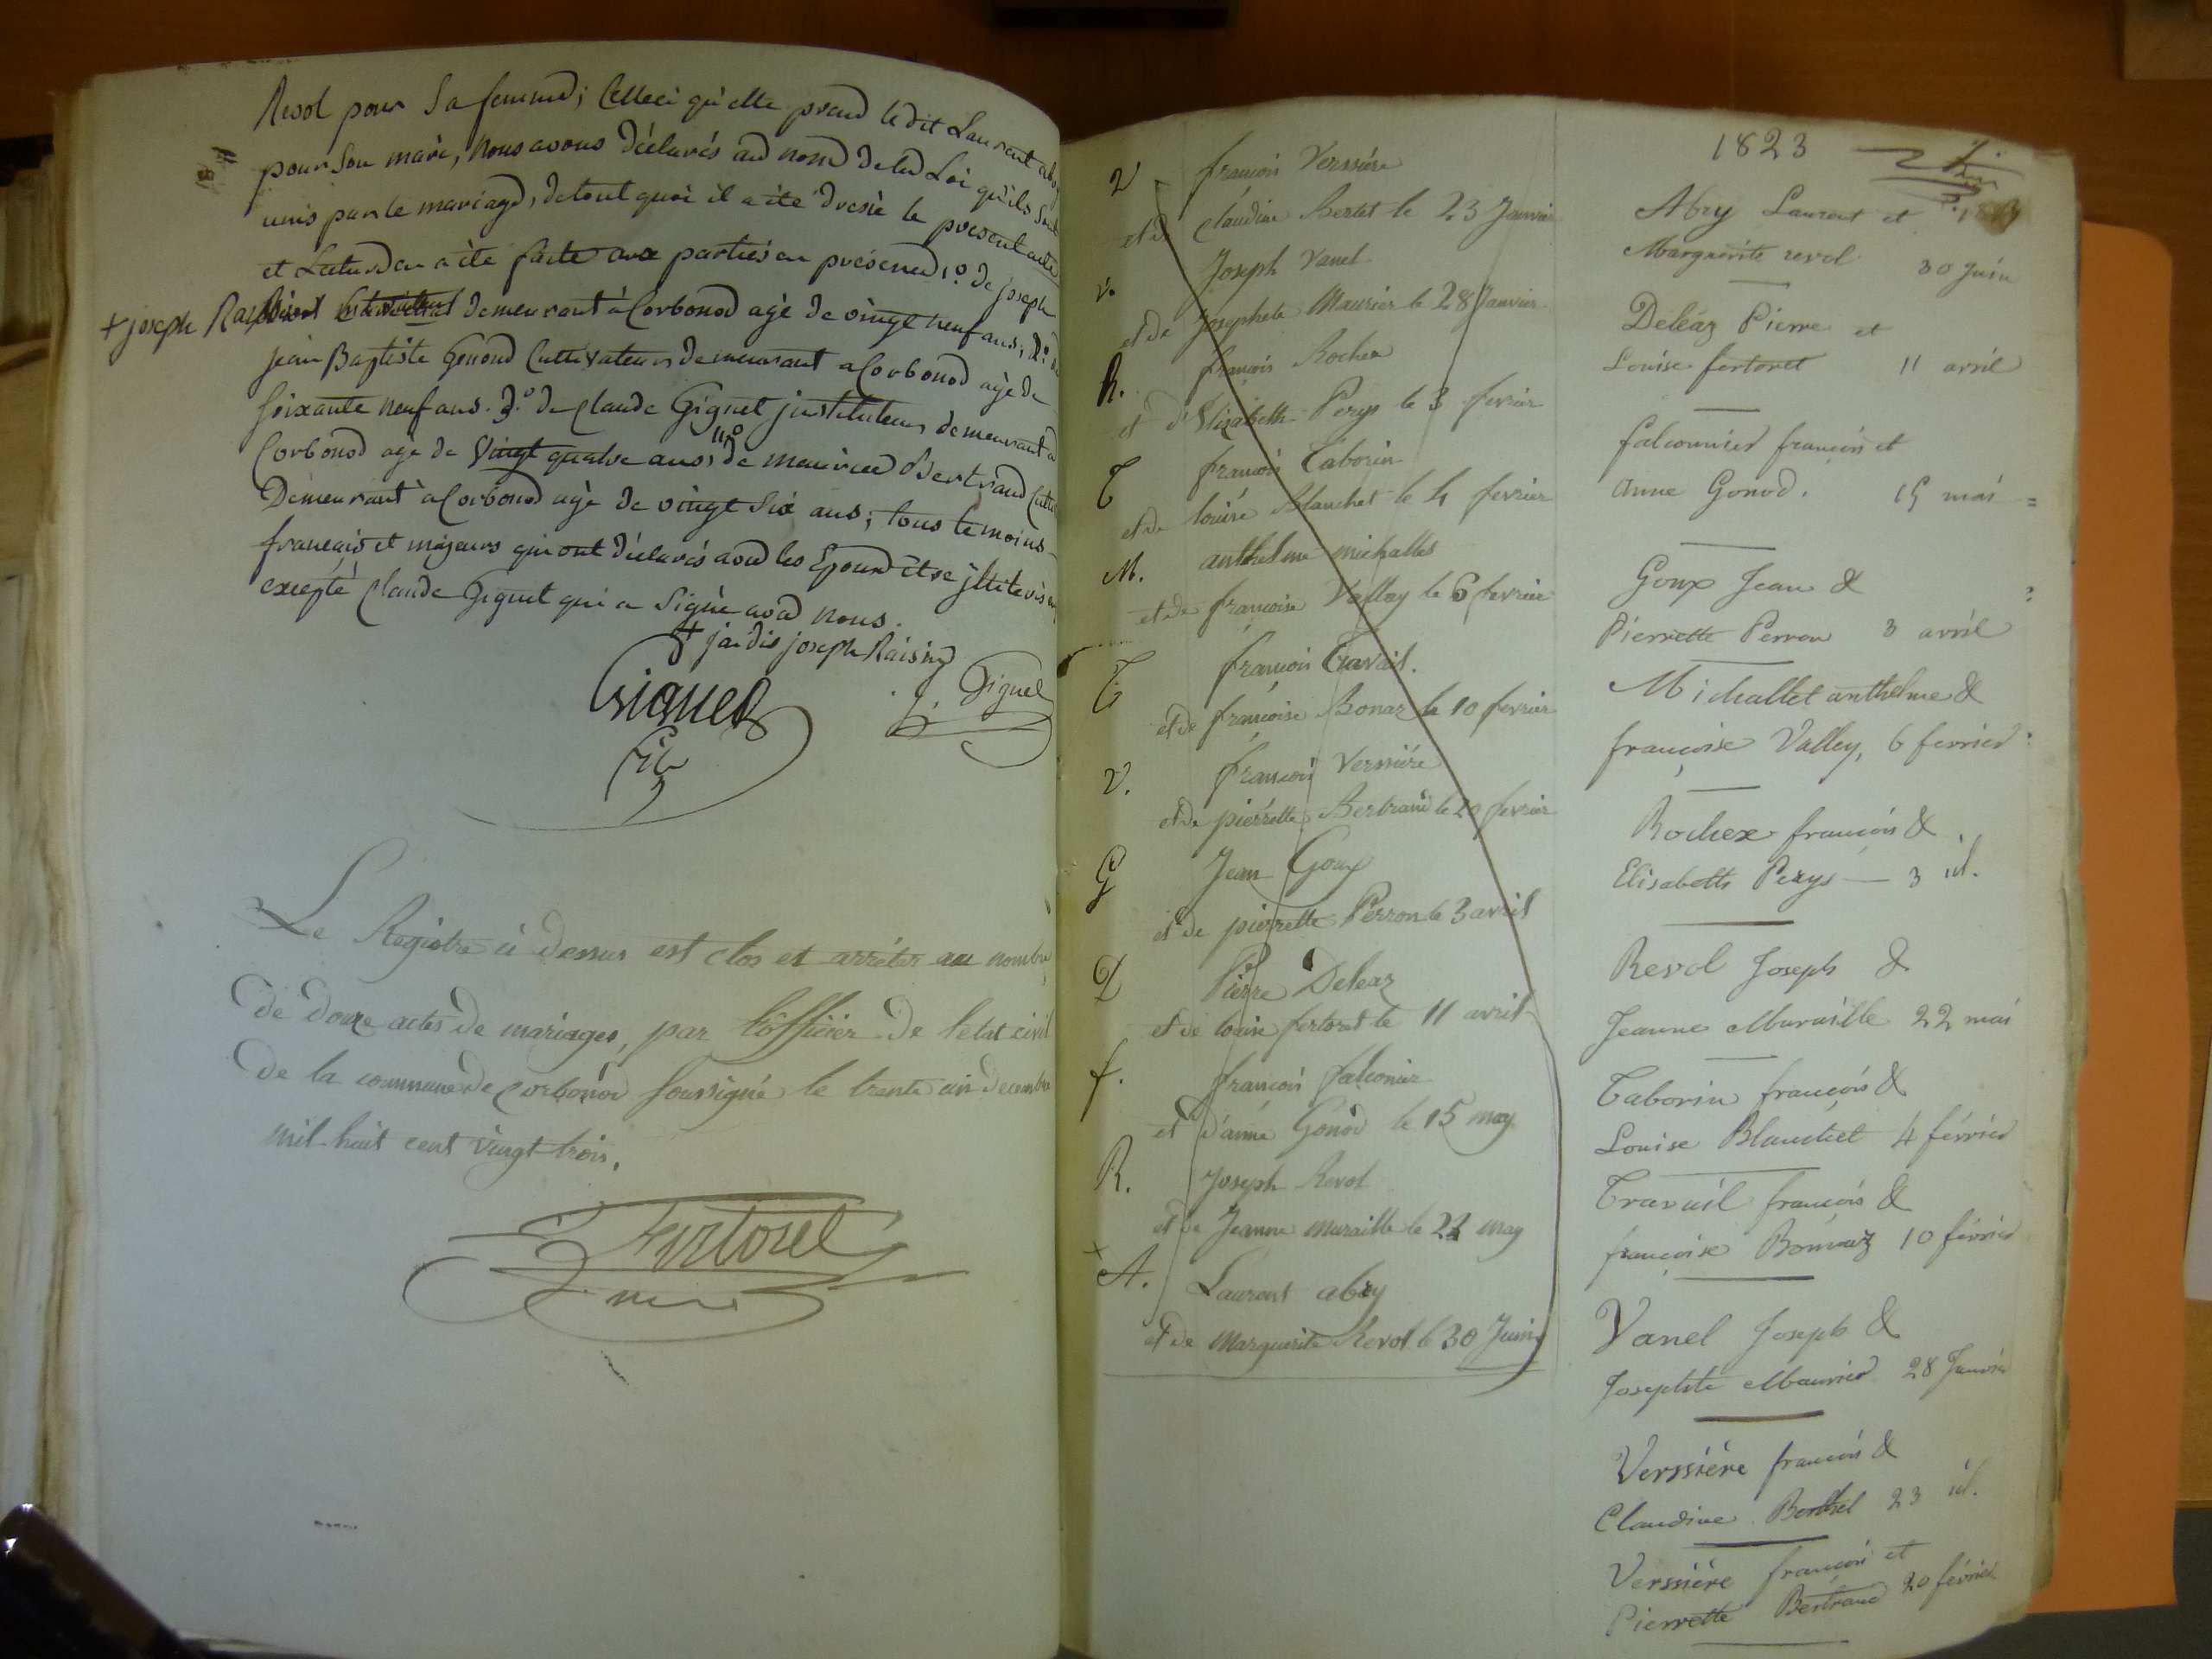 Revol pour Sa femme; Celleci qu'elle prend ledit Laurent abry
pour Son mari, nous avons déclarés au nom de la Loi qu'ils sont
unis par le mariage, de tout quoi il a été dressé le present acte
et Lecture en a été faite aux parties en présence 1.o de joseph
+ joseph demeurant à Corbonod agé de vingt neuf ans; 2.o de
jean Baptiste Gonod Cultivateur demeurant a Corbonod agé de
soixante neuf ans. 3.o de Claude Giguet jnstituteur demeurant a
Corbonod agé de Vingt quatre ans, 4.o de maurice Bertrand Cultiv
Demeurant a Corbonod agé de vingt Six ans; tous temoins
français et majeurs qui ont déclarés avec les Epoux être jlliterés
excepté Claude Giguet qui a Signé avec nous.
+ je dis joseph
Giguet
Giguet
Le Registre ci dessus est clos et arrêter au nombre
de douze actes de mariages, par l'officier de l'etat civil
de la commune de Corbonod soussigné le trente un decembre
mil huit cent vingt trois.
Fertoret
V françois Verssière
et de Claudine Bertet le 23 Janvier
V. Joseph Vanel
et de Josephete Maurier le 28 Janvier
R. françois Rochex
et d'Elizabeth Perys le 3 fevrier
T françois Taborin
et de louise Blanchet le 4 fevrier
M. anthelme michallet
et de françoise Valley le 6 fevrier
T. françois Travail.
et de françoise Bonaz le 10 fevrier
V. françois Verssière
et de pierrette Bertrand le 20 fevrier
G Jean Goux
et de pierrette Perron le 3 avril
D Pierre Deleaz
et de louise fertoret le 11 avril
f. françois falconier
et d'anne Gonod le 15 may
R. Joseph Revol
et de Jeanne muraille le 22 may
+
A. Laurent abry
et de Marguerite Revol le 30 Juin
1823
Abry Laurent et
Marguerite revol 30 Juin
Deléaz Pierre et
Louise fertoret 11 avril
falconnier françois et
Anne Gonod. 15 mai
Goux Jean &
Pierrette Perron 3 avril
Michallet anthelme &
françoise Valley, 6 fevrier
Rochex françois &
Elisabeth Perys — 3 id.
Revol Joseph &
Jeanne Muraille 22 mai
Taborin françois &
Louise Blanchet 4 février
Travail françois &
françoise Bonnaz 10 février
Vanel Joseph &
Josephte Maurier 28 Janvier
Verssière françois &
Claudine Berthet 23 id.
Verssière françois et
Pierrette Bertrand 20 février